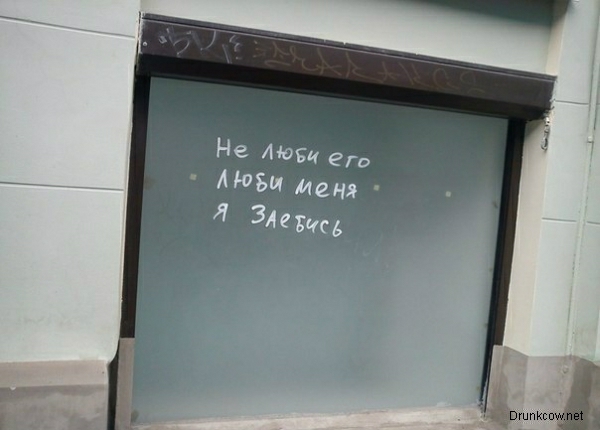 Не люби его
люби меня
я заебись
Drunkcow.net